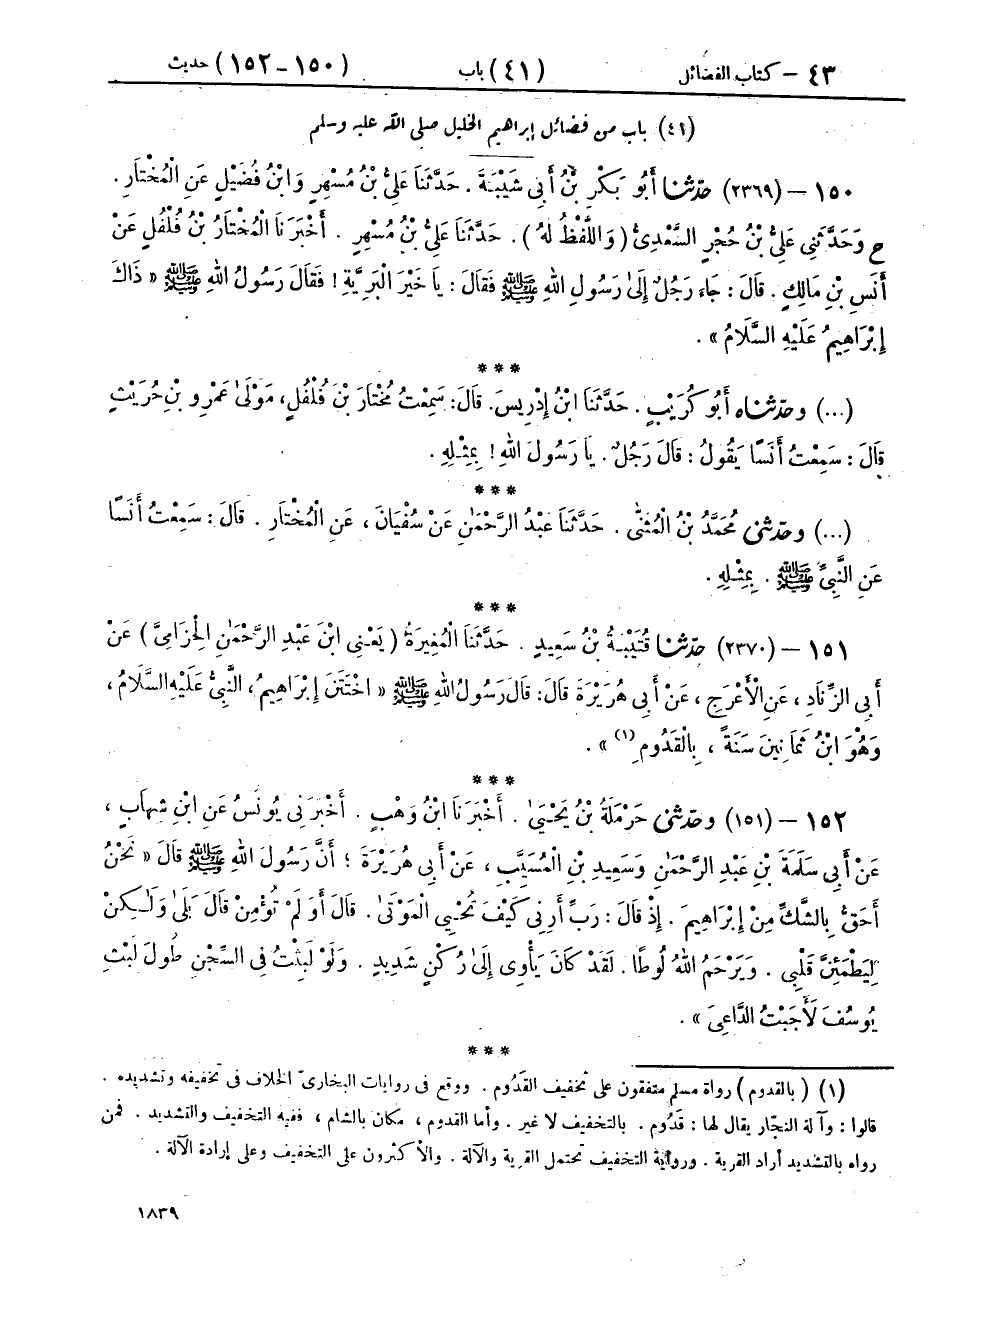 ٤٣ - كتاب الفضائل (٤١) باب (١٥٠-١٥٢) حديث
(٤١) باب من فضائل إبراهيم الخليل صلى الله عليه وسلم
١٥٠ - (٢٣٦٩) حدّثنا أَبُو بَكْرِ بْنُ أَبِي شَيْبَةَ . حَدَّثَنَا عَلِيُّ بْنُ مُسْهِرٍ وَابْنُ فُضَيْلٍ عَنِ الْمُخْتَارِ .
ح وَحَدَّثَنِي عَلِيُّ بْنُ حُجْرٍ السَّعْدِيُّ (وَاللَّفْظُ لَهُ) . حَدَّثَنَا عَلِيُّ بْنُ مُسْهِرٍ . أَخْبَرَنَا الْمُخْتَارُ بْنُ فُلْفُلٍ عَنْ
أَنَسِ بْنِ مَالِكٍ . قَالَ : جَاءَ رَجُلٌ إِلَىٰ رَسُولِ اللهِ ﷺ فَقَالَ : يَا خَيْرَ الْبَرِيَّةِ ! فَقَالَ رَسُولُ اللهِ ﷺ « ذَاكَ
إِبْرَاهِيمُ عَلَيْهِ السَّلَامُ » .
***
(...) وحدّثناه أَبُو كُرَيْبٍ . حَدَّثَنَا ابْنُ إِدْرِيسَ. قَالَ: سَمِعْتُ مُخْتَارَ بْنَ فُلْفُلٍ، مَوْلَىٰ عَمْرِو بْنِ حُرَيْثٍ
قَالَ : سَمِعْتُ أَنَسًا يَقُولُ : قَالَ رَجُلٌ . يَا رَسُولَ اللهِ ! بِمِثْلِهِ .
***
(...) وحدّثني مُحَمَّدُ بْنُ الْمُثَنَّىٰ . حَدَّثَنَا عَبْدُ الرَّحْمَٰنِ عَنْ سُفْيَانَ ، عَنِ الْمُخْتَارِ . قَالَ : سَمِعْتُ أَنَسًا
عَنِ النَّبِيِّ ﷺ . بِمِثْلِهِ .
***
١٥١ - (٢٣٧٠) حدّثنا قُتَيْبَةُ بْنُ سَعِيدٍ . حَدَّثَنَا الْمُغِيرَةُ (يَعْنِي ابْنَ عَبْدِ الرَّحْمَٰنِ الْحِزَامِيَّ) عَنْ
أَبِي الزِّنَادِ ، عَنِ الْأَعْرَجِ ، عَنْ أَبِي هُرَيْرَةَ قَالَ: قَالَ رَسُولُ اللهِ ﷺ « اخْتَتَنَ إِبْرَاهِيمُ، النَّبِيُّ عَلَيْهِ السَّلَامُ ،
وَهُوَ ابْنُ ثَمَانِينَ سَنَةً ، بِالْقَدُومِ (١) » .
***
١٥٢ - (١٥١) وحدّثني حَرْمَلَةُ بْنُ يَحْيَىٰ . أَخْبَرَنَا ابْنُ وَهْبٍ . أَخْبَرَنِي يُونُسُ عَنِ ابْنِ شِهَابٍ ،
عَنْ أَبِي سَلَمَةَ بْنِ عَبْدِ الرَّحْمَٰنِ وَسَعِيدِ بْنِ الْمُسَيَّبِ ، عَنْ أَبِي هُرَيْرَةَ ؛ أَنَّ رَسُولَ اللهِ ﷺ قَالَ « نَحْنُ
أَحَقُّ بِالشَّكِّ مِنْ إِبْرَاهِيمَ . إِذْ قَالَ : رَبِّ أَرِنِي كَيْفَ تُحْيِي الْمَوْتَىٰ . قَالَ أَوَ لَمْ تُؤْمِنْ قَالَ بَلَىٰ وَلَٰكِنْ
لِيَطْمَئِنَّ قَلْبِي . وَيَرْحَمُ اللهُ لُوطًا . لَقَدْ كَانَ يَأْوِي إِلَىٰ رُكْنٍ شَدِيدٍ . وَلَوْ لَبِثْتُ فِي السِّجْنِ طُولَ لَبْثِ
يُوسُفَ لَأَجَبْتُ الدَّاعِيَ » .
***
(١) (بالقدوم) رواة مسلم متفقون على تخفيف القَدُوم . ووقع في روايات البخاريّ الخلاف في تخفيفه وتشديده .
قالوا : وآلة النجّار يقال لها : قَدُوم . بالتخفيف لا غير . وأما القدوم ، مكان بالشام ، ففيه التخفيف والتشديد . فمن
رواه بالتشديد أراد القرية . ورواية التخفيف تحتمل القرية والآلة . والأكثرون على التخفيف وعلى إرادة الآلة .
١٨٣٩